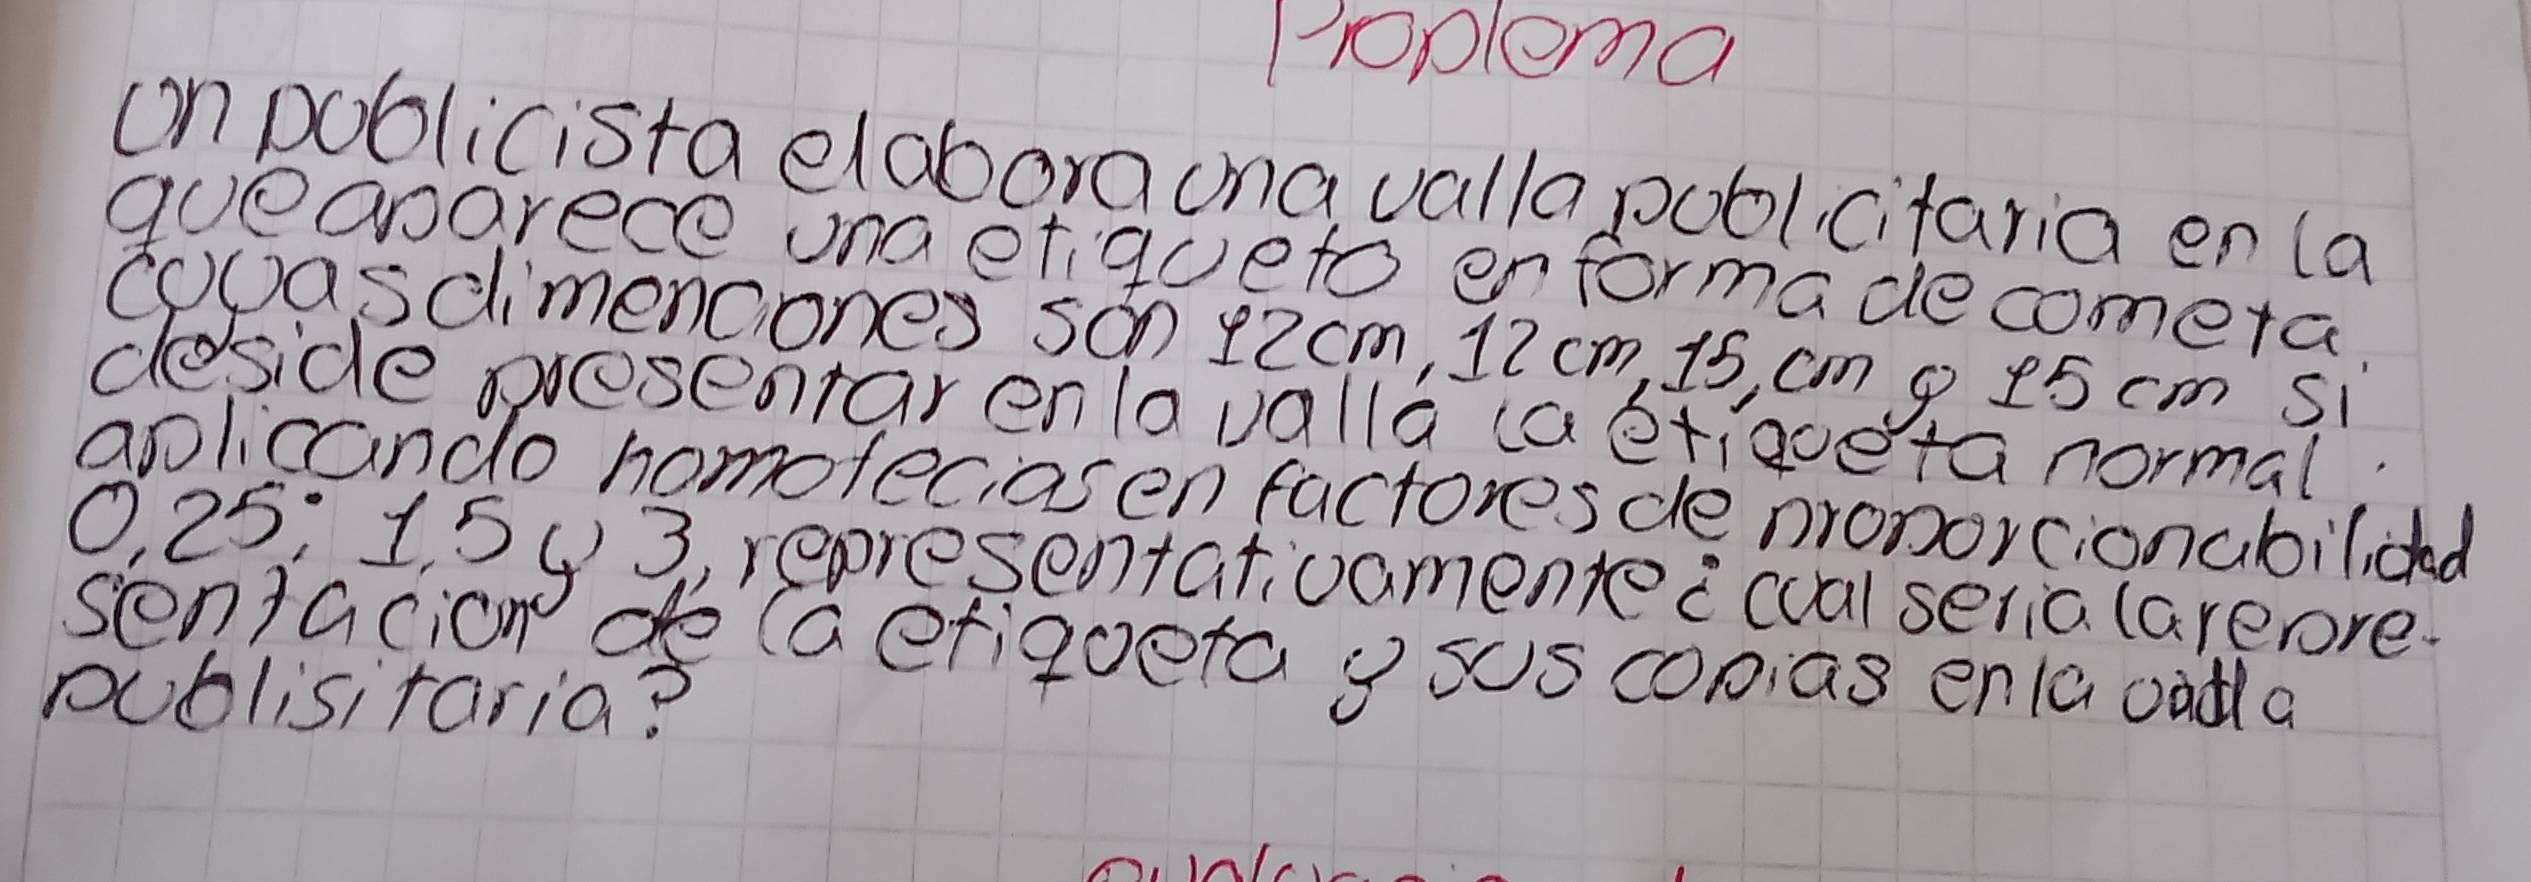 Problema
Un publicista elabora una valla publicitaria en la
que aparece una etiqueto en forma de cometa.
cuyas dimenciones son 12cm, 12 cm, 15, cm y 15 cm si
deside presentar en la valla la etiqueta normal.
aplicando homoteciasen factores de proporcionabilidad
0,25; 1,5 y 3, representativamente ¿cual seria la repre-
sentacion de la etiqueta y sus copias en la valla
publisitaria?